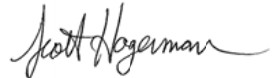 Scott Hagerman